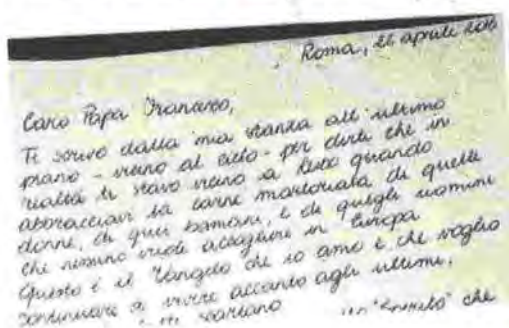 Roma, 26 aprile 2016
Caro Papa Francesco,
Ti scrivo dalla mia stanza all'ultimo
piano - vicino al cielo - per dirti che in
realtà ti stavo vicino a Lesbo quando
abbracciavi la carne martoriata di quelle
donne, di quei bambini, e di quegli uomini
che nessuno vuole accogliere in Europa
Questo è il Vangelo che io amo e che voglio
continuare a vivere accanto agli ultimi,
che